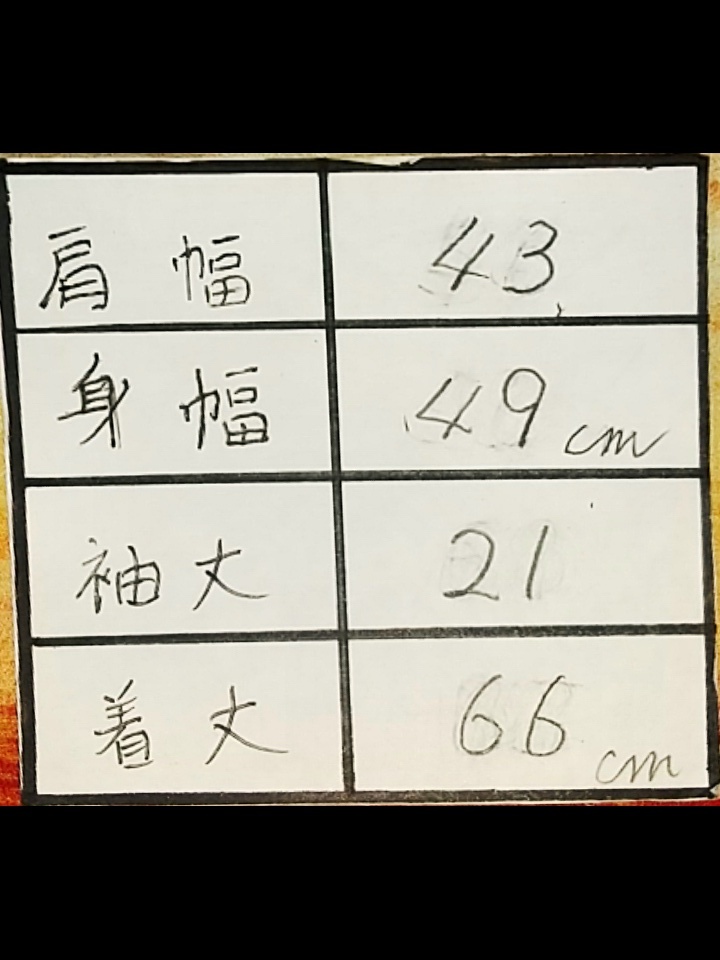 肩幅 43
身幅 49cm
袖丈 21
着丈 66cm